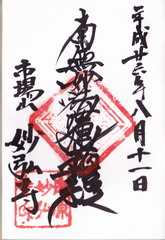 平成廿年八月十一日
南無妙法蓮華経
市場山
妙弘寺